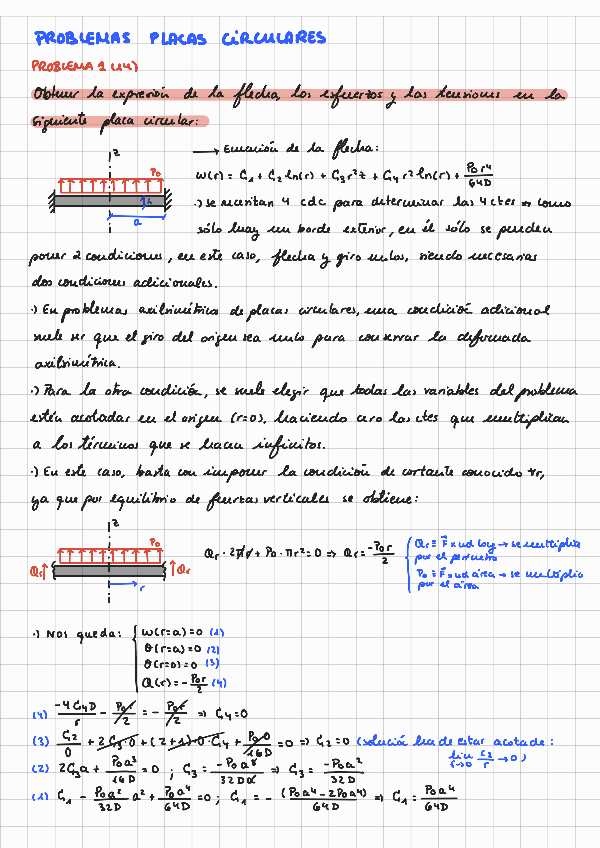 PROBLEMAS PLACAS CIRCULARES
PROBLEMA 1 (14)
Obtener la expresión de la flecha, los esfuerzos y las tensiones en la
siguiente placa circular:
z
P₀
h
a
→ Ecuación de la flecha:
w(r) = C₁ + C₂ ln(r) + C₃ r² + C₄ r² ln(r) + P₀ r⁴ / 64D
·) se necesitan 4 cdc para determinar las 4 ctes ⇒ como
sólo hay un borde exterior, en él sólo se pueden
poner 2 condiciones, en este caso, flecha y giro nulos, siendo necesarias
dos condiciones adicionales.
·) En problemas axilsimétricos de placas circulares, una condición adicional
suele ser que el giro del origen sea nulo para conservar la deformada
axilsimétrica.
·) Para la otra condición, se suele elegir que todas las variables del problema
estén acotadas en el origen (r=0), haciendo cero las ctes que multiplican
a los términos que se hacen infinitos.
·) En este caso, basta con imponer la condición de cortante conocido ∀r,
ya que por equilibrio de fuerzas verticales se obtiene:
z
P₀
Qr
Qr
r
Qr · 2πr + P₀ · πr² = 0 ⇒ Qr = -P₀r / 2
Qr ≡ F × ud long → se multiplica
por el perímetro
P₀ ≡ F × ud área → se multiplica
por el área
·) Nos queda:
w(r=a) = 0 (1)
θ(r=a) = 0 (2)
θ(r=0) = 0 (3)
Q(r) = - P₀r / 2 (4)
(4) -4C₄D / r - P₀r / 2 = - P₀r / 2 ⇒ C₄ = 0
(3) C₂ / 0 + 2C₃·0 + (2+1)·0·C₄ + P₀·0 / 16D = 0 ⇒ C₂ = 0 (solución ha de estar acotada:
lim r→0 C₂ / r → 0)
(2) 2C₃a + P₀a³ / 16D = 0 ; C₃ = -P₀a³ / 32Da ⇒ C₃ = -P₀a² / 32D
(1) C₁ - P₀a² / 32D a² + P₀a⁴ / 64D = 0 ; C₁ = - (P₀a⁴ - 2P₀a⁴) / 64D ⇒ C₁ = P₀a⁴ / 64D